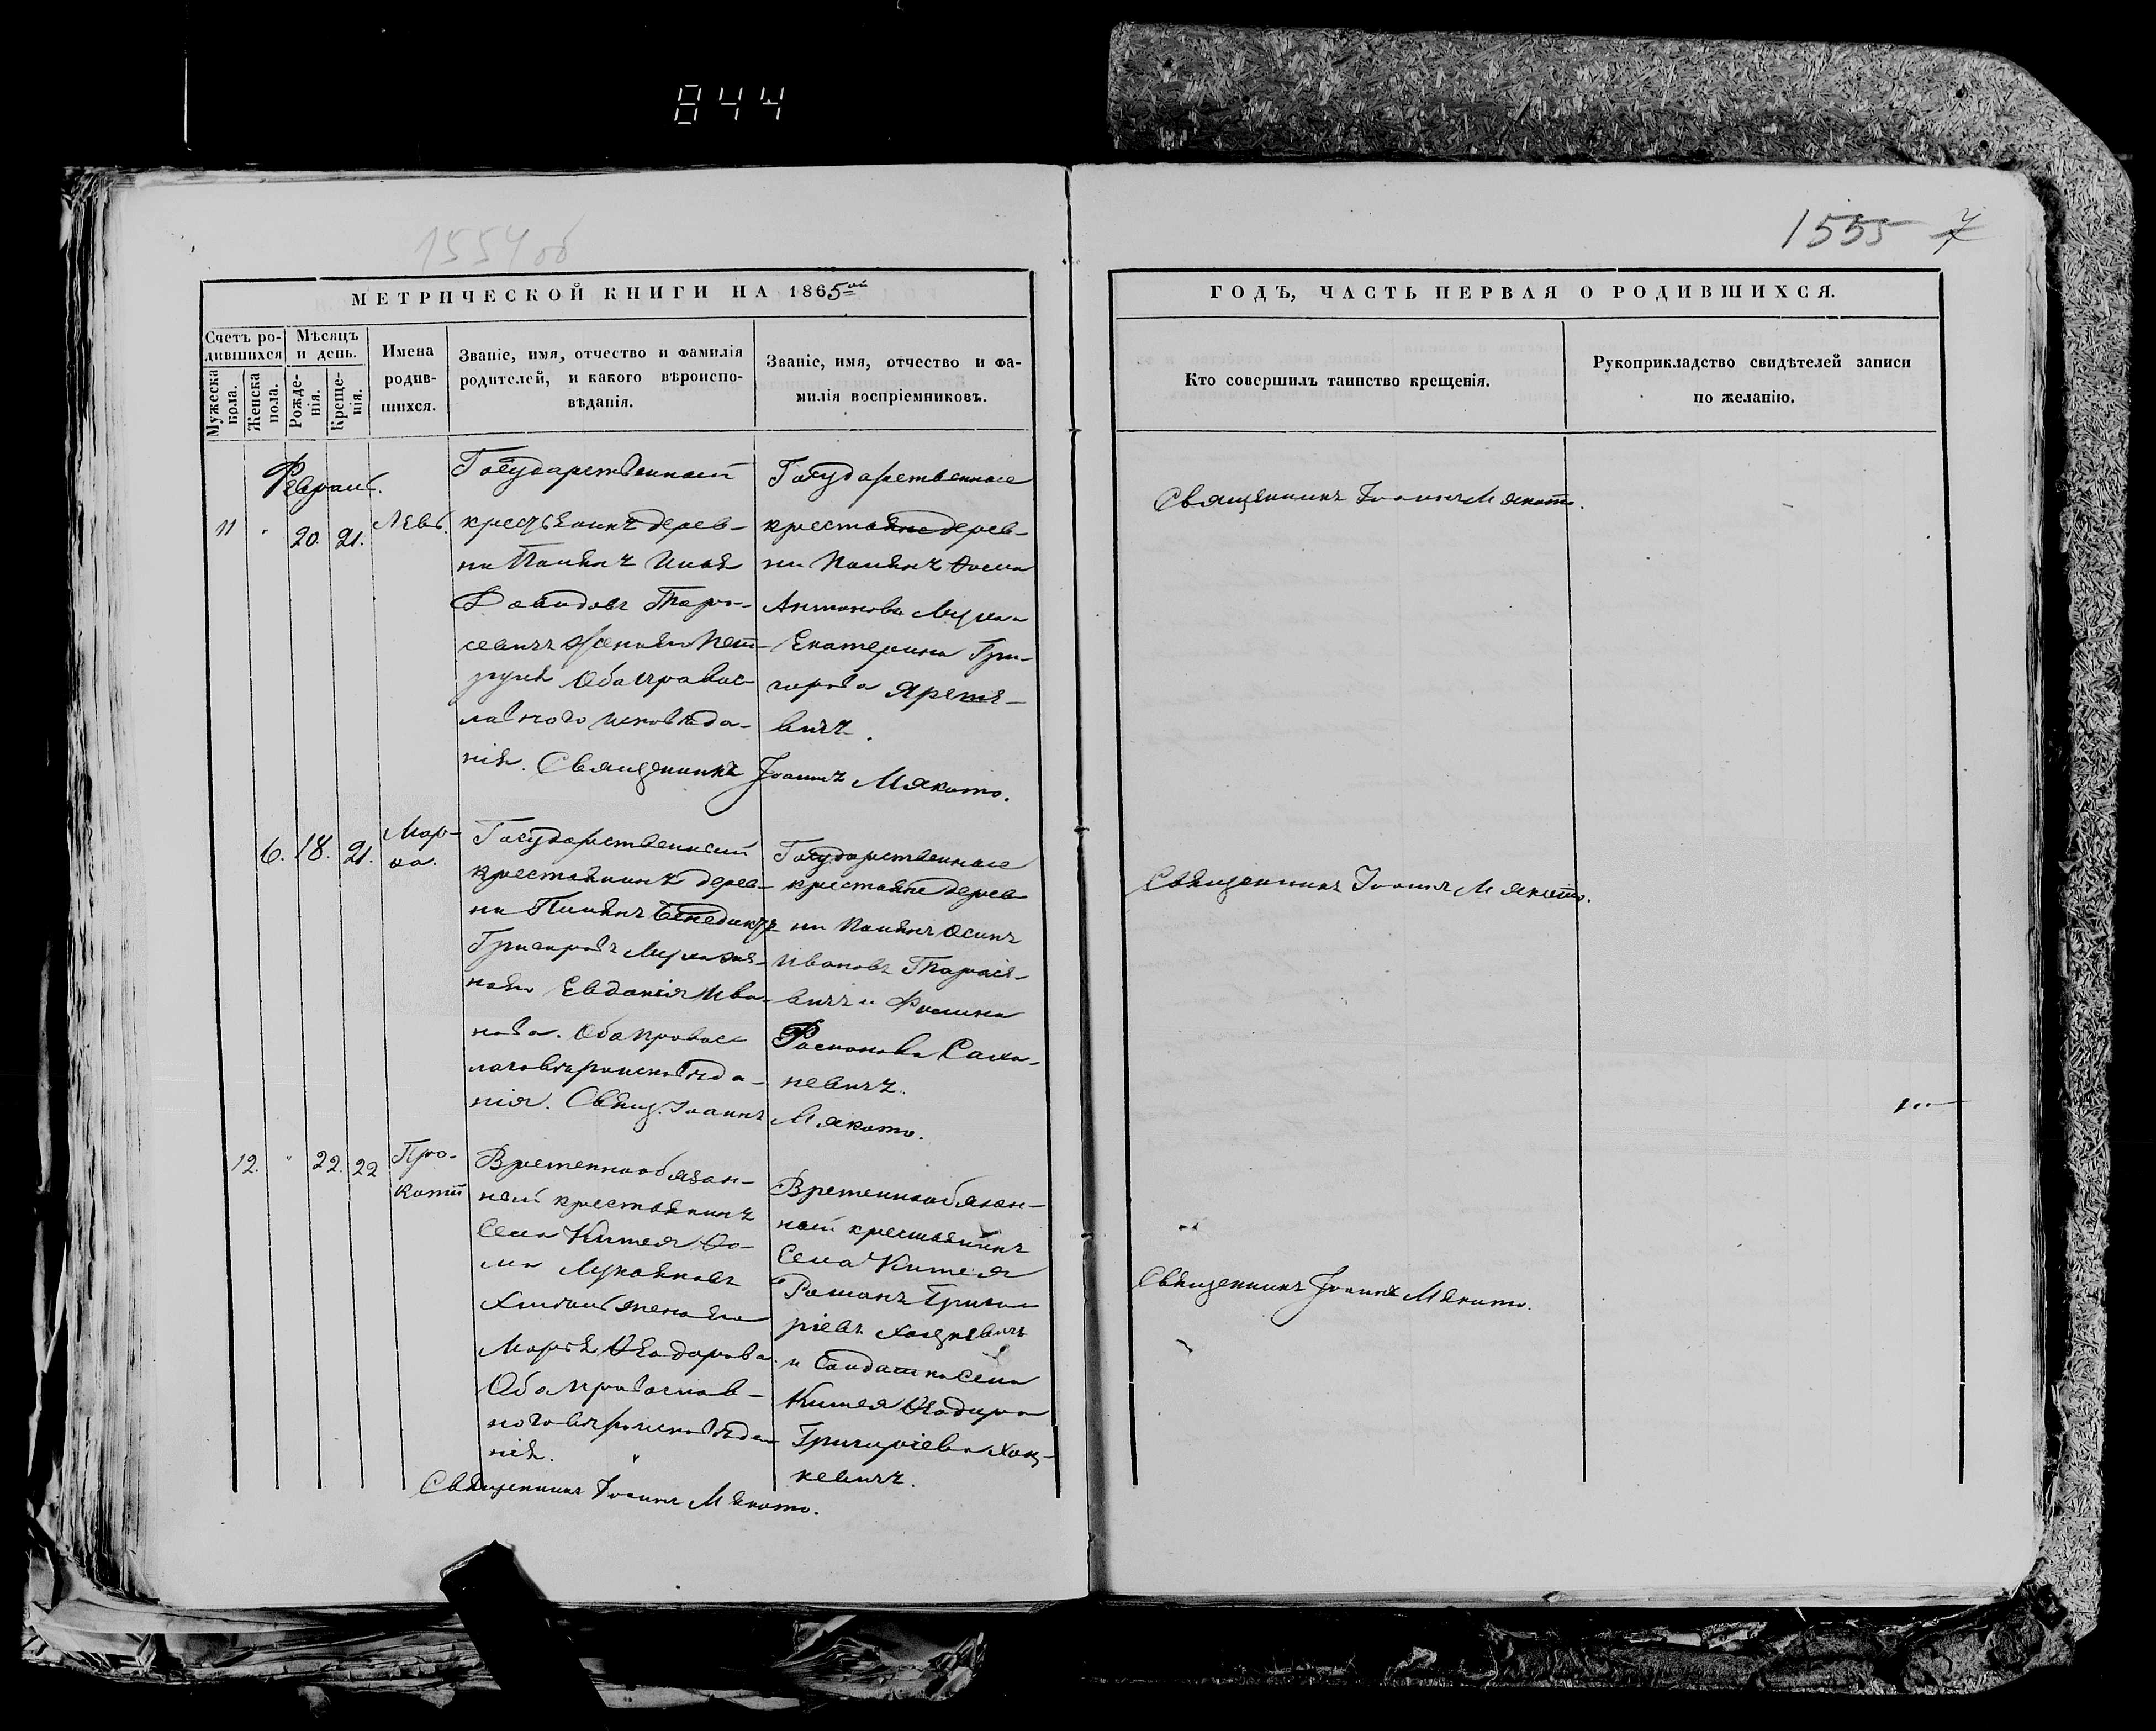 844
1554 об
1555 7
МЕТРИЧЕСКОЙ КНИГИ НА 1865ый
Счетъ ро-
дившихся
Мужеска
пола.
Женска
пола.
Мѣсяцъ
и день.
Рожде-
нія.
Креще-
нія.
Имена
родив-
шихся.
Званіе, имя, отчество и фамилія
родителей, и какого вѣроиспо-
вѣданія.
Званіе, имя, отчество и фа-
милія воспріемниковъ.
Февраль.
11 " 20. 21.
Левъ.
Государственный
крестьянинъ дерев-
ни
Давидовъ Тара-
севичъ
Оба правос-
лавного исповѣда-
нія. Священникъ Іоаннъ Мякото.
Государственные
крестьяне дерев-
ни
Антоновъ
Екатерина Гри-
горова
вичъ.
6. 18. 21.
Мар-
ѳа.
Государственный
крестьянинъ дерев-
ни Бенедиктъ
Григоровъ
Евдокія Ива-
нова. Оба правос
вѣроисповѣда-
нія. Свящ. Іоаннъ Мякото.
Государственные
крестьяне дерев
ни Осипъ
Ивановъ Тарасе-
вичъ и
невичъ.
12. " 22. 22
Про-
копій
Временнообязан-
ный крестьянинъ
Села Кителя Ѳо-
ма Лукьяновъ
жена его
Марья Ѳеодорова.
Оба православ-
ного вѣроисповѣда-
нія.
Священникъ Іоаннъ Мякото.
Временнообязан-
ный крестьянинъ
Села Кителя
Романъ Григо-
ріевъ
и Солдатка Села
Кителя Ѳеодора
Григоріева Хац-
кевичъ.
ГОДЪ, ЧАСТЬ ПЕРВАЯ О РОДИВШИХСЯ.
Кто совершилъ таинство крещенія.
Рукоприкладство свидѣтелей записи
по желанію.
Священникъ Іоаннъ Мякото.
Священникъ Іоаннъ Мякото.
Священникъ Іоаннъ Мякото.